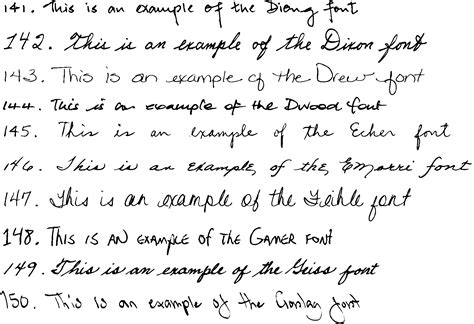 141. This is an example of the Dieng font
142. This is an example of the Dixon font
143. This is an example of the Drew font
144. This is an example of the Dwood font
145. This is an example of the Echer font
146. This is an example, of the, EMarri font
147. This is an example of the Feihle font
148. This is an example of the Gamer font
149. This is an example of the Geiss font
150. This is an example of the font